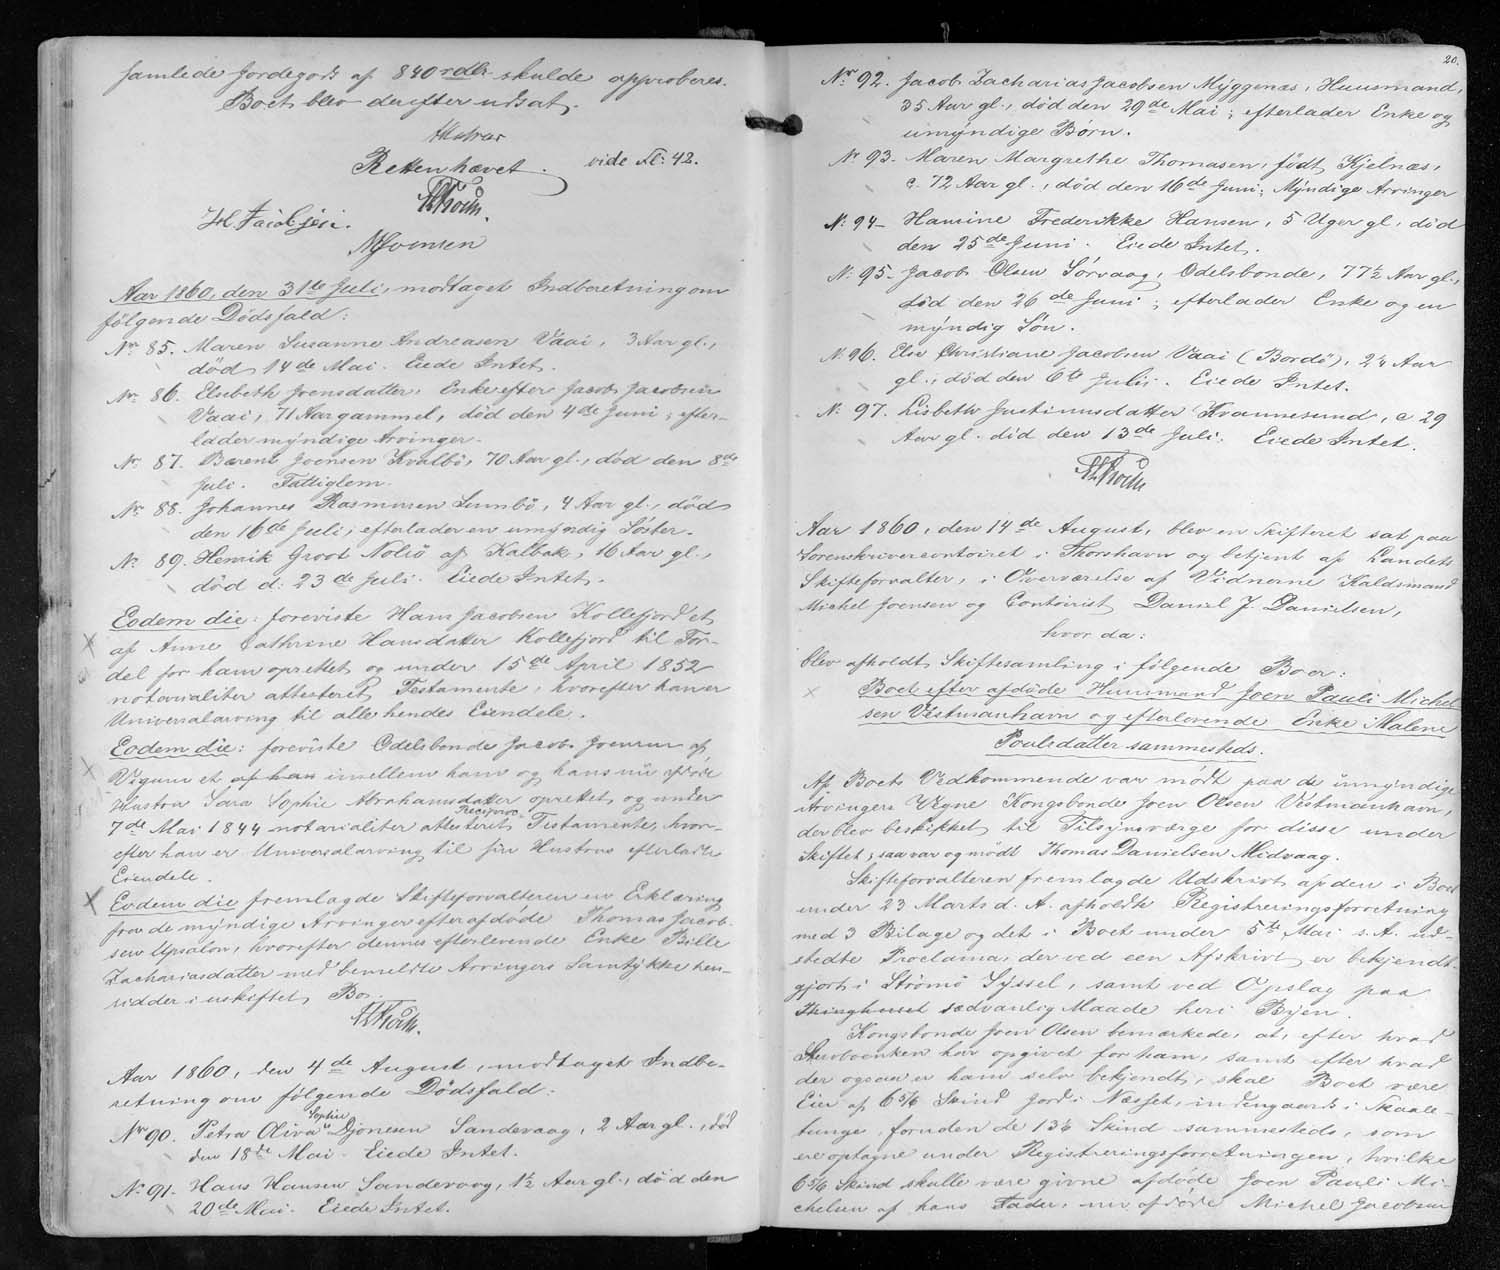 samlede Jordegods af 840 rdlr skulde approberes.
Boet blev derefter udsat.
Retten hævet.
vide fl: 42.
HTroim.
H. Jacobsen.
MJoensen
Aar 1860, den 31te Juli, modtaget Indberetning om
følgende Dødsfald:
No 85. Maren Susanne Andreasen Vaai, 3 Aar gl.,
død 14de Mai. Eiede Intet.
No 86. Elsbeth Joensdatter, Enke efter Jacob Jacobsen
Vaai, 71 Aar gammel, død den 4de Juni; efter-
lader myndige Arvinger.
No 87. Joensen Kvalbø, 70 Aar gl., død den 8de
Juli. Fattiglem.
No 88. Johannes Rasmussen Sumbø, 4 Aar gl., død
den 16de Juli; efterlader en umyndig Søster.
No 89. Henrik Groot Nolsø af Kalbak, 16 Aar gl.,
død d: 23de Juli. Eiede Intet.
Eodem die: foreviste Hans Jacobsen Kollefjord et
af Anne Cathrine Hansdatter Kollefjord til For-
del for ham oprettet og under 15de April 1852
notarialiter attesteret Testamente, hvorefter han er
Universalarving til alle hendes Eiendele.
Eodem die: foreviste Odelsbonde Jacob Joensen af
Vigum et af ham imellem ham og hans nu afdøde
Hustru Sara Sophie Abrahamsdatter oprettet og under
7de Mai 1844 notarialiter attesteret Reciproc. Testamente, hvor-
efter han er Universalarving til sin Hustrus efterladte
Eiendele.
Eodem die fremlagde Skifteforvalteren en Erklæring
fra de myndige Arvinger efter afdøde Thomas Jacob-
sen Upsalon, hvorefter dennes efterlevende Enke Bille
Zachariasdatter med bemeldte Arvingers Samtykke hen-
sidder i uskiftet Bo.
HTroim.
Aar 1860, den 4de August, modtaget Indbe-
retning om følgende Dødsfald:
No 90. Petra Oliva Sophie Djonesen Sandevaag, 2 Aar gl., død
den 18de Mai. Eiede Intet.
No 91. Hans Hansen Sandevaag, 1½ Aar gl., død den
20de Mai. Eiede Intet.
20.
No 92. Jacob Zacharias Jacobsen Myggenæs, Huusmand,
35 Aar gl., død den 29de Mai; efterlader Enke og
umyndige Børn.
No 93. Maren Margrethe Thomasen, født Kjelnæs,
c. 72 Aar gl., død den 16de Juni; Myndige Arvinger
No 94 Hamine Frederikke Hansen, 5 Uger gl., død
den 25de Juni. Eiede Intet.
No 95. Jacob Olsen Sørvaag, Odelsbonde, 77½ Aar gl.,
død den 26de Juni; efterlader Enke og en
myndig Søn.
No 96. Else Christiane Jacobsen Vaai (Bordø), 2¼ Aar
gl., død den 6te Juli. Eiede Intet.
No 97. Lisbeth Justinusdatter Kvannesund, c 29
Aar gl. død den 13de Juli. Eiede Intet.
HTroim
Aar 1860, den 14de August, blev en Skifteret sat paa
Sorenskrivercontoiret i Thorshavn og betjent af Landets
Skifteforvalter, i Overværelse af Vidnerne Kaldsmand
Michel Joensen og Contoirist Daniel J. Danielsen,
hvor da:
blev afholdt Skiftesamling i følgende Boer:
Boet efter afdøde Huusmand Joen Pauli Michel-
sen Vestmanhavn og efterlevende Enke Malene
Poulsdatter sammesteds.
Af Boets Vedkommende var mødt paa de umyndige
Arvingers Vegne Kongsbonde Joen Olsen Vestmanhavn,
der blev beskikket til Tilsynsværge for disse under
Skiftet; saa var og mødt Thomas Danielsen Midvaag.
Skifteforvalteren fremlagde Udskrivt af den i Boet
under 23 Marts d. A. afholdte Registreringsforretning
med 3 Bilage og det i Boet under 5te Mai s. A. ud-
stedte Proclama, der ved een Afskrivt er bekjendt-
gjort i Strømø Syssel, samt ved Opslag paa
Thinghuset sædvanlig Maade her i Byen.
Kongsbonde Joen Olsen bemærkede, at, efter hvad
Stervboenken har opgivet for ham, samt efter hvad
der ogsaa er ham selv bekjendt, skal Boet være
Eier af 6 5/6 Skind Jord i Næsset, indengaards i Skaale-
tunge, foruden de 13½ Skind sammesteds, som
ere optagne under Registreringsforretningen, hvilke
6 5/6 Skind skulle være givne afdøde Joen Pauli Mi-
chelsen af hans Fader, nu afdøde Michel Jacobsen